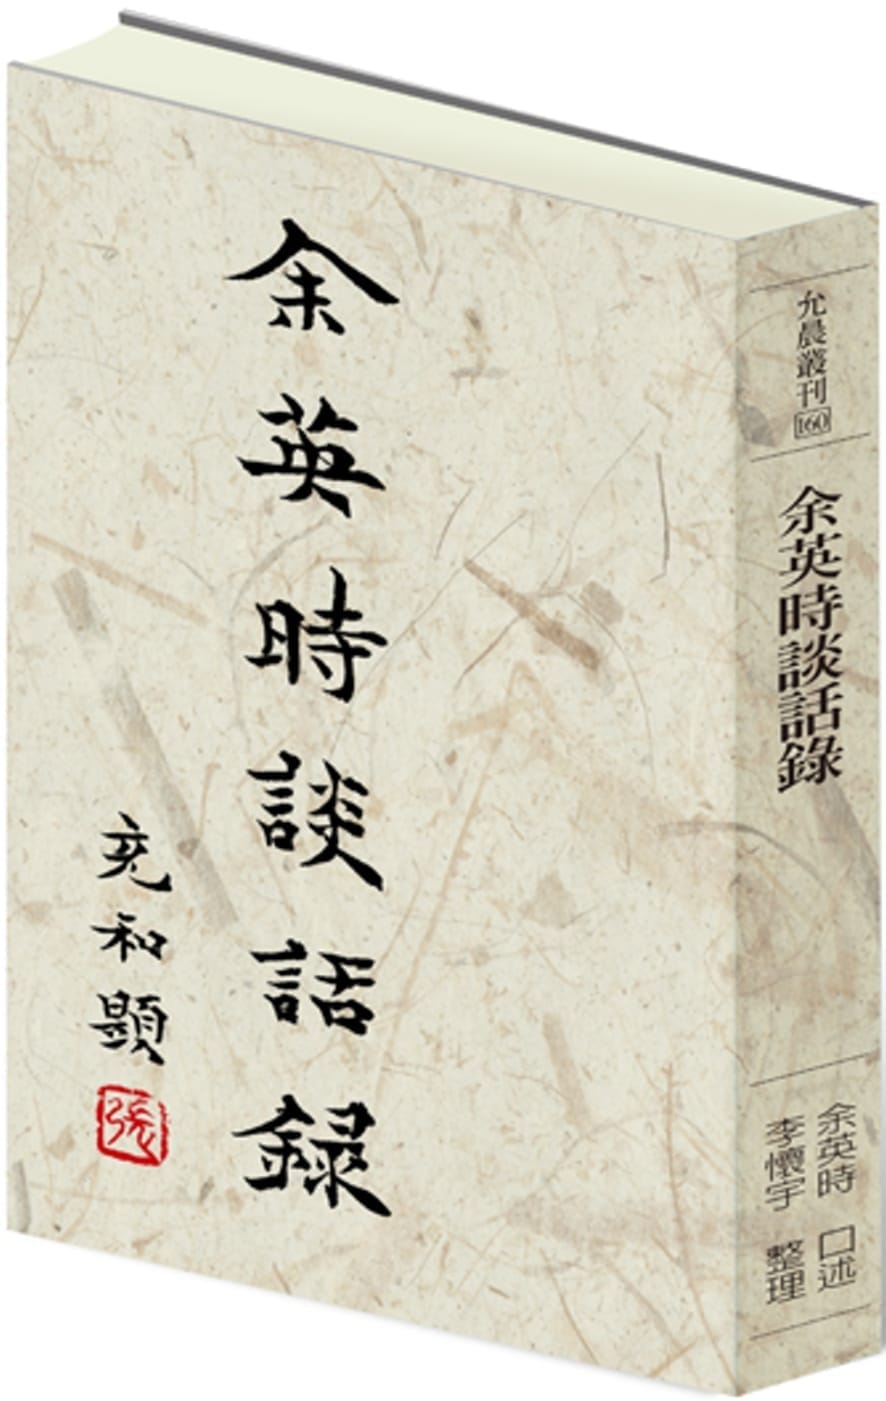 余英時談話錄
充和題
張
允晨叢刊160
余英時談話錄
余英時 口述
李懷宇 整理